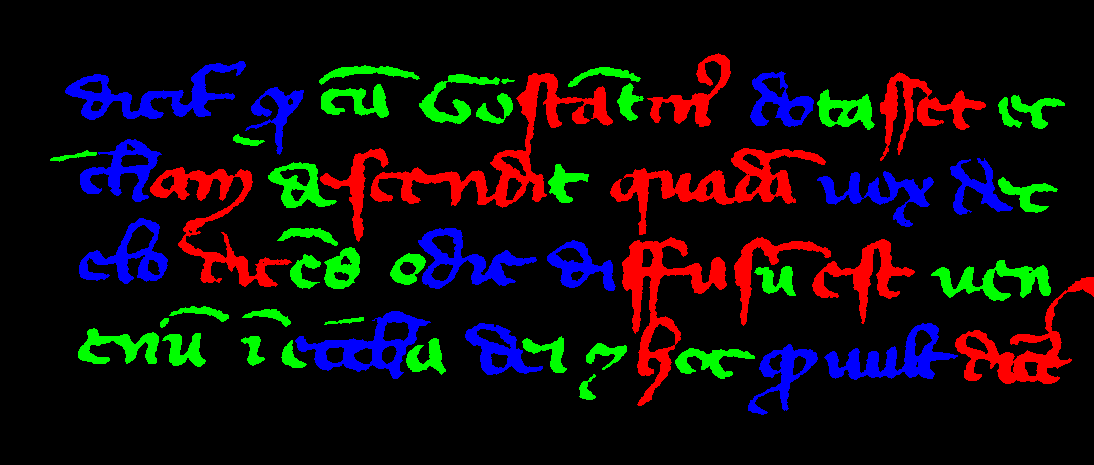 dicit ꝙ cū Cōstātinꝰ dotasset ec
cl̄iam descendit quadā uox de c
elo dicēs odie diffusū est uen
enū ī eccl̄ia dei ⁊ hoc ꝙ uult dicē